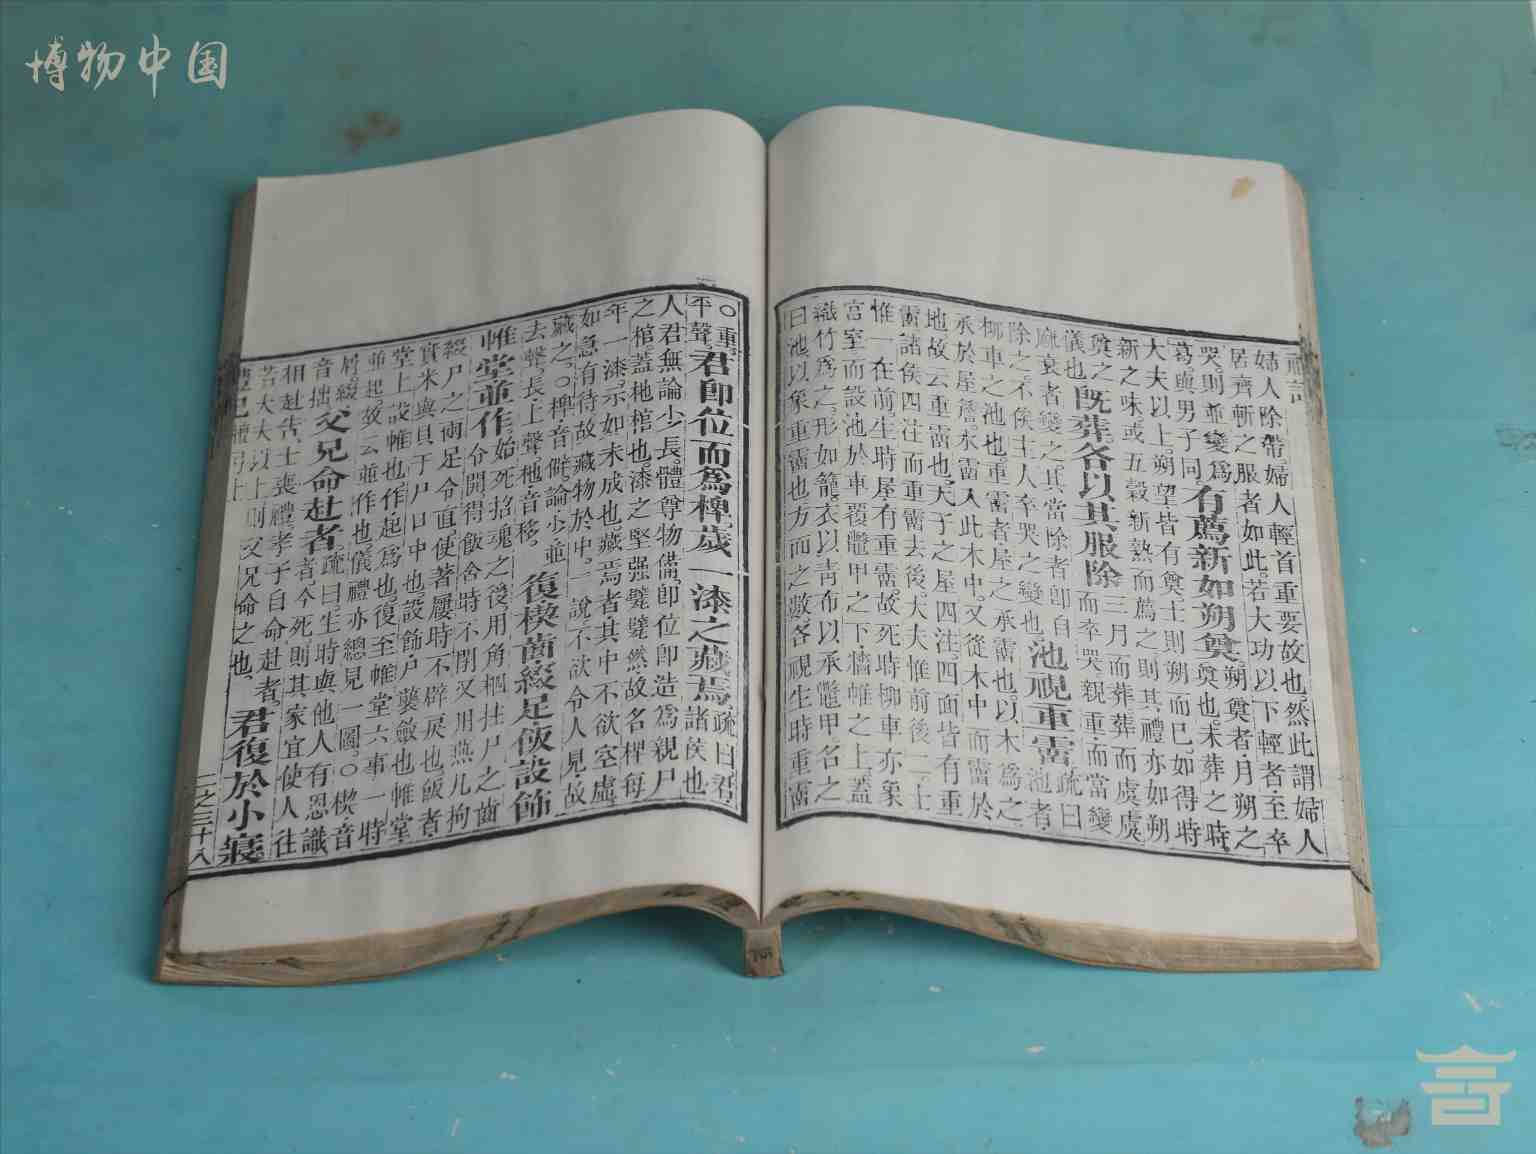 博物中国
婦人除帶婦人輕首重要故也然此謂婦人
居齊斬之服者如此若大功以下輕者至卒
哭則並變爲
葛與男子同
有薦新如朔奠
朔奠者月朔之
奠也未葬之時
大夫以上朔望皆有奠士則朔而已如得時
新之味或五穀新熟而薦之則其禮亦如朔
奠之
儀也
既葬各以其服除
三月而葬葬而虞虞
而卒哭親重而當變
麻衰者變之其當除者卽自
除之不俟主人卒哭之變也
池視重霤
疏曰
池者
柳車之池也重霤者屋之承霤也以木爲之
承於屋簷水霤入此木中又從木中而霤於
地故云重霤也天子之屋四注四面皆有重
霤諸侯四注而重霤去後大夫惟前後二士
惟一在前生時屋有重霤故死時柳車亦象
宮室而設池於車覆鼈甲之下牆帷之上蓋
織竹爲之形如籠衣以青布以承鼈甲名之
曰池以象重霤也方而之數各視生時重霤
○重
平聲
君卽位而爲椑歲一漆之藏焉
疏曰君
諸侯也
人君無論少長體尊物備卽位卽造爲親尸
之棺蓋杝棺也漆之堅强甓甓然故名椑每
年一漆示如未成也藏焉者其中不欲空虛
如急有待故藏物於中一說不欲令人見故
藏之○椑音僻論少並
去聲長上聲杝音移
復楔齒綴足飯設飾
帷堂並作
始死招魂之後用角柶拄尸之齒
令開得飯含時不閉又用燕几拘
綴尸之兩足令直使著屨時不辟戾也飯者
實米與貝于尸口中也設飾尸襲斂也帷堂
堂上設帷也作起爲也復至帷堂六事一時
並起故云並作也儀禮亦總見一圖○楔音
屑綴
音拙
父兄命赴者
疏曰生時與他人有恩識
者今死則其家宜使人往
相赴告士喪禮孝子自命赴者
若大夫以上則父兄命之也
君復於小寢
禮記檀弓上
二之三十八